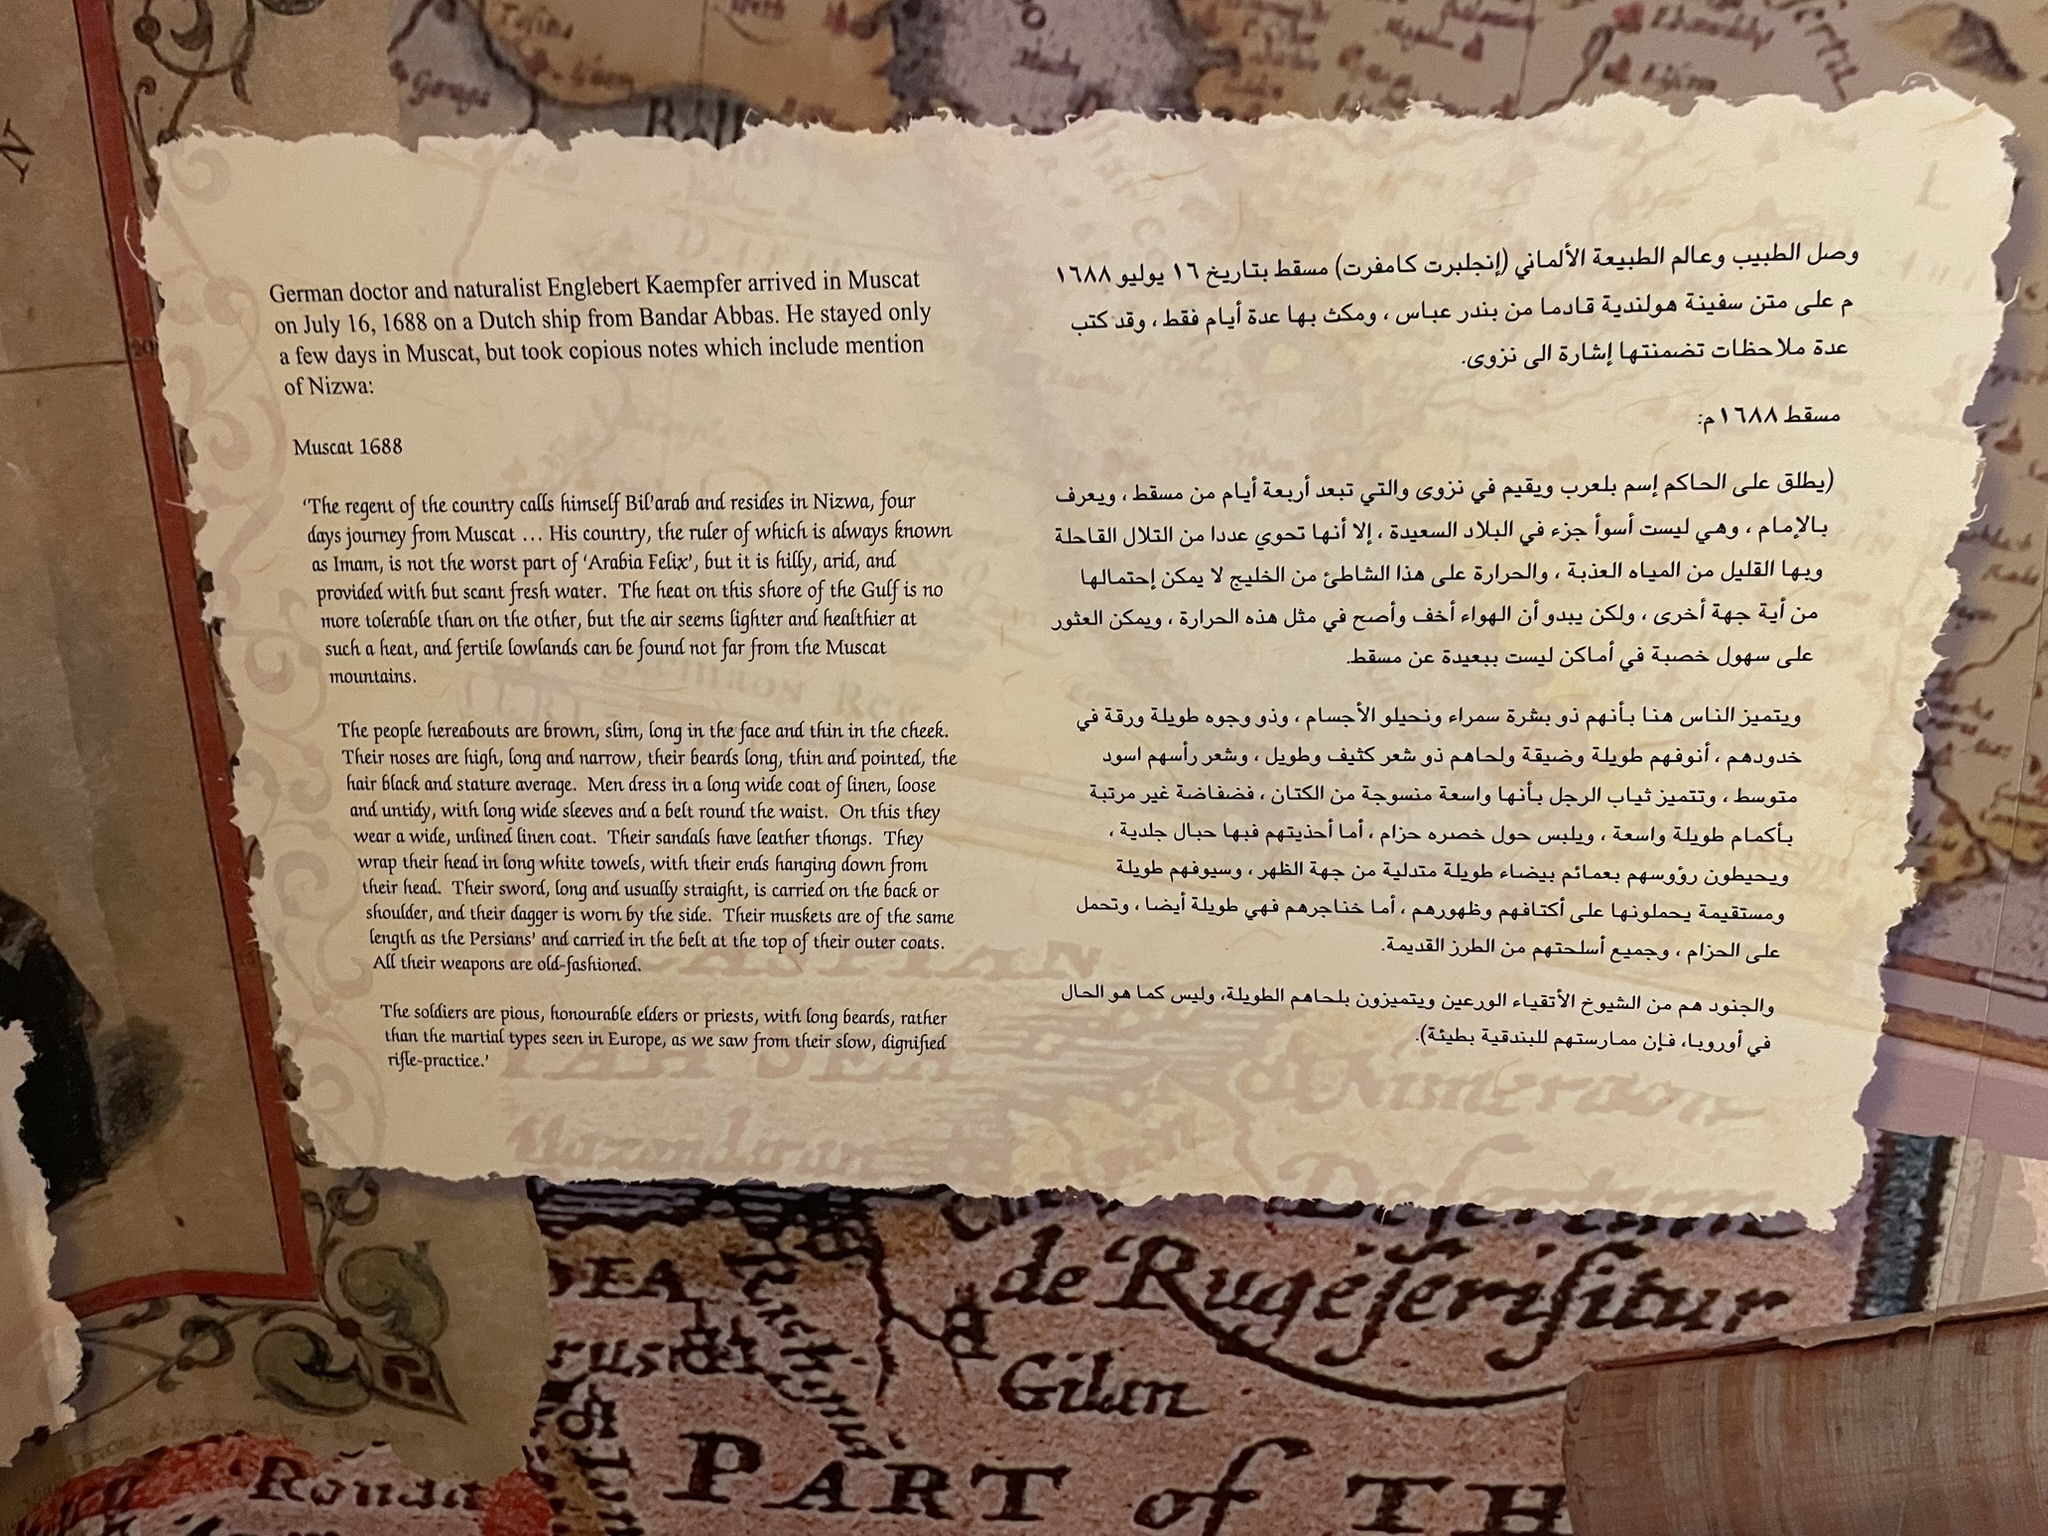 German doctor and naturalist Englebert Kaempfer arrived in Muscat
on July 16, 1688 on a Dutch ship from Bandar Abbas. He stayed only
a few days in Muscat, but took copious notes which include mention
of Nizwa:
Muscat 1688
‘The regent of the country calls himself Bil’arab and resides in Nizwa, four
days journey from Muscat … His country, the ruler of which is always known
as Imam, is not the worst part of ‘Arabia Felix’, but it is hilly, arid, and
provided with but scant fresh water. The heat on this shore of the Gulf is no
more tolerable than on the other, but the air seems lighter and healthier at
such a heat, and fertile lowlands can be found not far from the Muscat
mountains.
The people hereabouts are brown, slim, long in the face and thin in the cheek.
Their noses are high, long and narrow, their beards long, thin and pointed, the
hair black and stature average. Men dress in a long wide coat of linen, loose
and untidy, with long wide sleeves and a belt round the waist. On this they
wear a wide, unlined linen coat. Their sandals have leather thongs. They
wrap their head in long white towels, with their ends hanging down from
their head. Their sword, long and usually straight, is carried on the back or
shoulder, and their dagger is worn by the side. Their muskets are of the same
length as the Persians’ and carried in the belt at the top of their outer coats.
All their weapons are old-fashioned.
The soldiers are pious, honourable elders or priests, with long beards, rather
than the martial types seen in Europe, as we saw from their slow, dignified
rifle-practice.’
وصل الطبيب وعالم الطبيعة الألماني (إنجلبرت كامفرت) مسقط بتاريخ ١٦ يوليو ١٦٨٨
م على متن سفينة هولندية قادما من بندر عباس ، ومكث بها عدة أيام فقط ، وقد كتب
عدة ملاحظات تضمنتها إشارة الى نزوى.
مسقط ١٦٨٨م:
(يطلق على الحاكم إسم بلعرب ويقيم في نزوى والتي تبعد أربعة أيام من مسقط ، ويعرف
بالإمام ، وهي ليست أسوأ جزء في البلاد السعيدة ، إلا أنها تحوي عددا من التلال القاحلة
وبها القليل من المياه العذبة ، والحرارة على هذا الشاطئ من الخليج لا يمكن إحتمالها
من أية جهة أخرى ، ولكن يبدو أن الهواء أخف وأصح في مثل هذه الحرارة ، ويمكن العثور
على سهول خصبة في أماكن ليست ببعيدة عن مسقط.
ويتميز الناس هنا بأنهم ذو بشرة سمراء ونحيلو الأجسام ، وذو وجوه طويلة ورقة في
خدودهم ، أنوفهم طويلة وضيقة ولحاهم ذو شعر كثيف وطويل ، وشعر رأسهم اسود
متوسط ، وتتميز ثياب الرجل بأنها واسعة منسوجة من الكتان ، فضفاضة غير مرتبة
بأكمام طويلة واسعة ، ويلبس حول خصره حزام ، أما أحذيتهم فبها حبال جلدية ،
ويحيطون رؤوسهم بعمائم بيضاء طويلة متدلية من جهة الظهر ، وسيوفهم طويلة
ومستقيمة يحملونها على أكتافهم وظهورهم ، أما خناجرهم فهي طويلة أيضا ، وتحمل
على الحزام ، وجميع أسلحتهم من الطرز القديمة.
والجنود هم من الشيوخ الأتقياء الورعين ويتميزون بلحاهم الطويلة، وليس كما هو الحال
في أوروبا، فإن ممارستهم للبندقية بطيئة).
de Rugéserisitur
Gilan
PART of TH